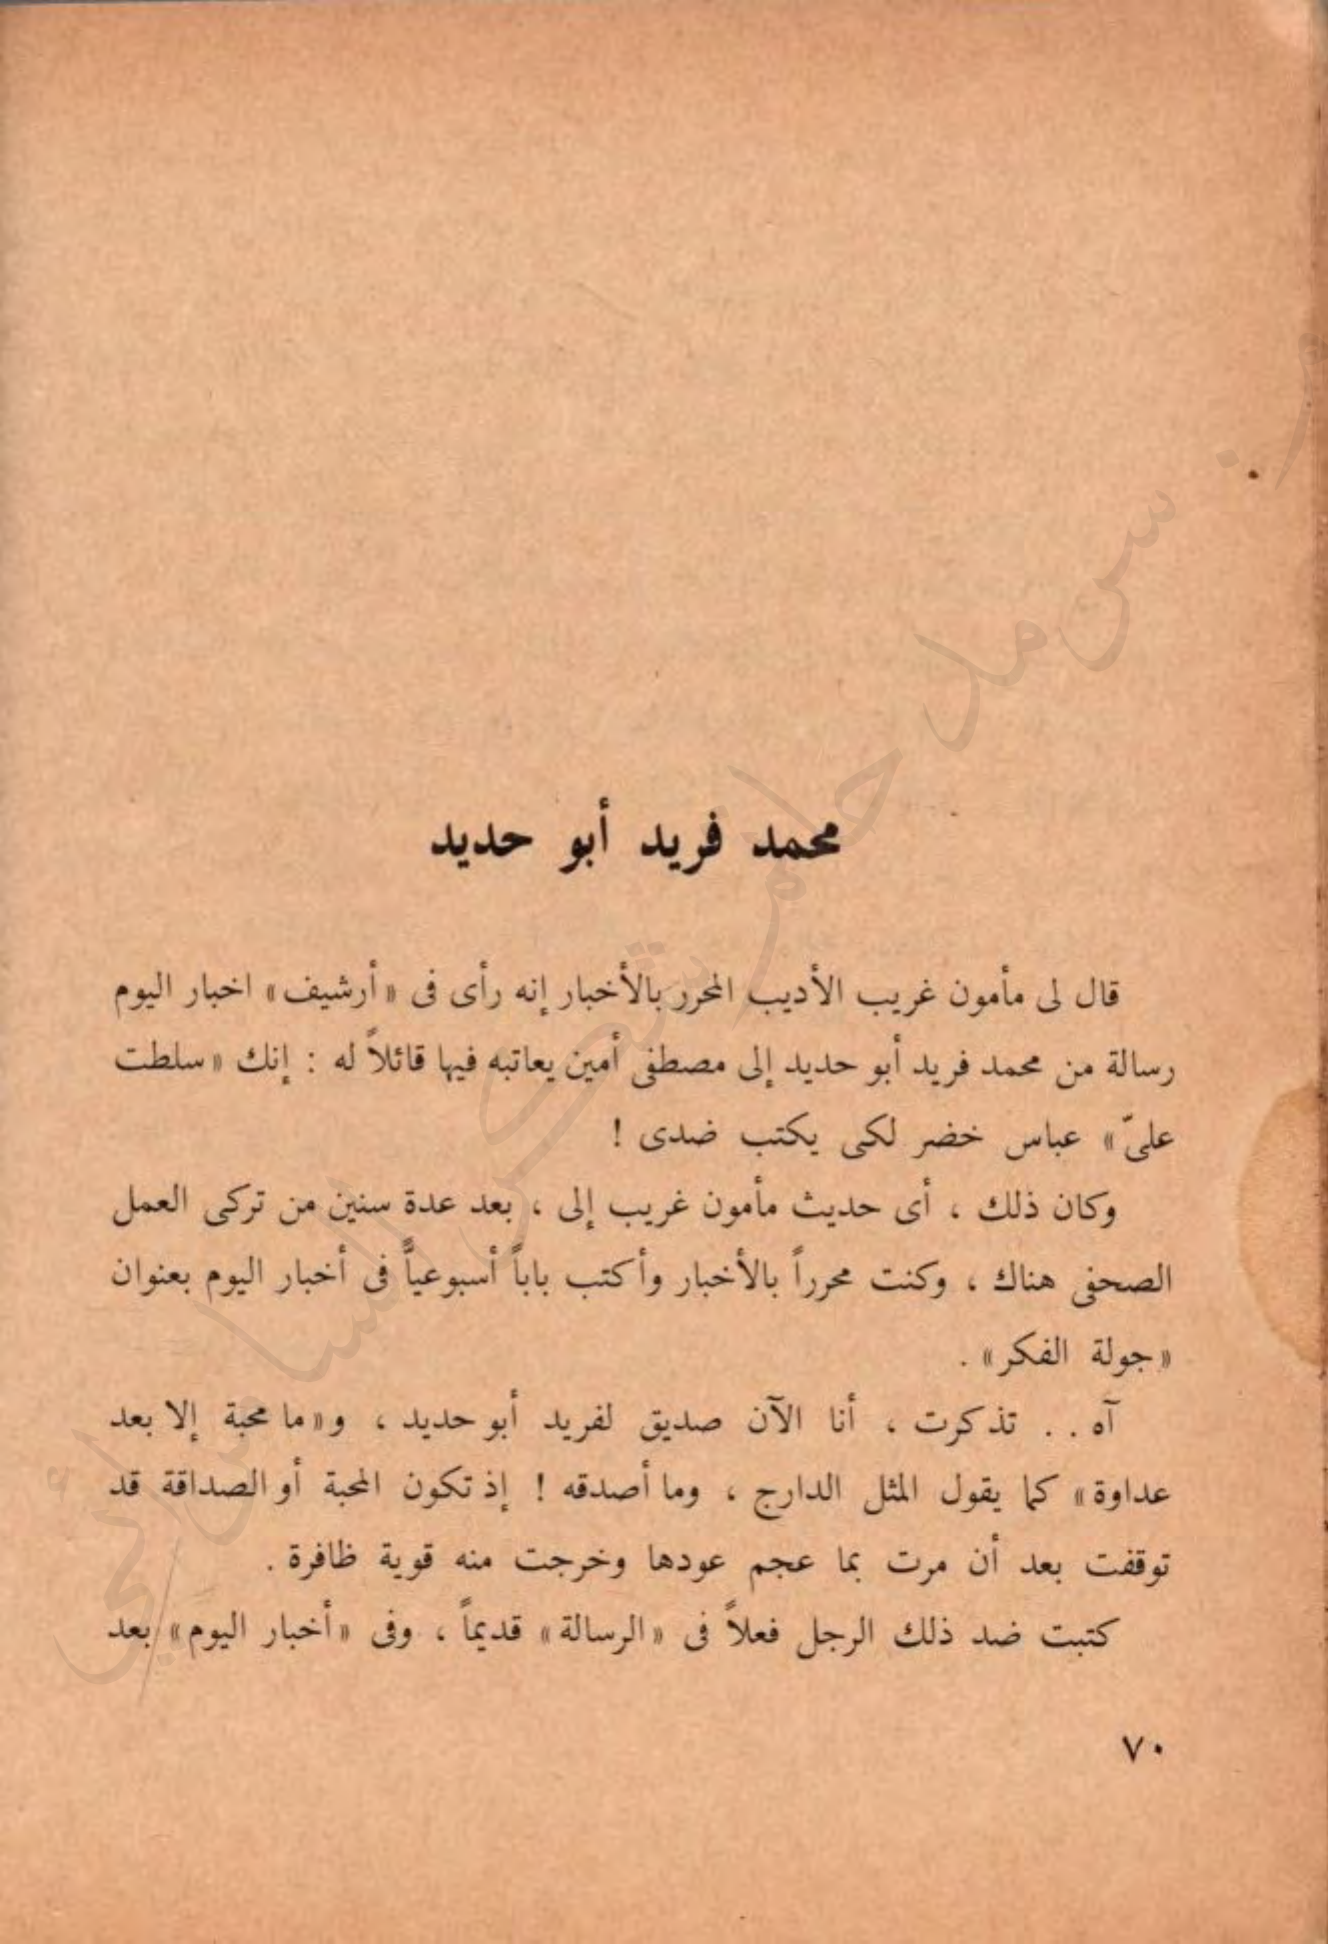 محمد فريد أبو حديد
قال لى مأمون غريب الأديب المحرر بالأخبار إنه رأى فى «أرشيف» اخبار اليوم
رسالة من محمد فريد أبو حديد إلى مصطفى أمين يعاتبه فيها قائلاً له : إنك «سلطت
علىّ» عباس خضر لكى يكتب ضدى !
وكان ذلك ، أى حديث مأمون غريب إلى ، بعد عدة سنين من تركى العمل
الصحفى هناك ، وكنت محرراً بالأخبار وأكتب باباً أسبوعياً فى أخبار اليوم بعنوان
«جولة الفكر» .
آه . . تذكرت ، أنا الآن صديق لفريد أبو حديد ، و«ما محبة إلا بعد
عداوة» كما يقول المثل الدارج ، وما أصدقه ! إذ تكون المحبة أو الصداقة قد
توقفت بعد أن مرت بما عجم عودها وخرجت منه قوية ظافرة .
كتبت ضد ذلك الرجل فعلاً فى «الرسالة» قديماً ، وفى «أخبار اليوم» بعد
٧٠